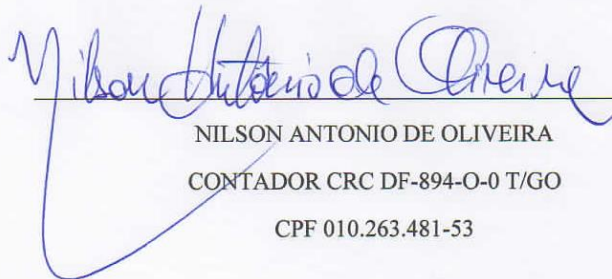 Nilson Antonio de Oliveira
NILSON ANTONIO DE OLIVEIRA
CONTADOR CRC DF-894-O-0 T/GO
CPF 010.263.481-53